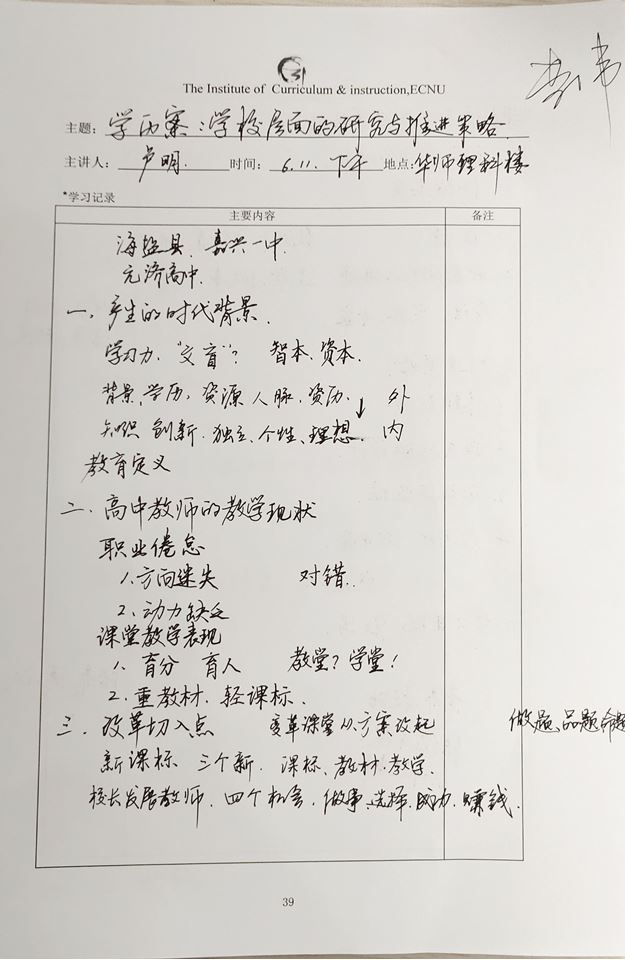 The Institute of Curriculum & instruction,ECNU
主题：学历案：学校层面的研究与推进策略
主讲人：卢明 时间：6.11.下午 地点：华师理科楼
*学习记录
主要内容 备注
海盐县、嘉兴一中
元济高中
一、产生的时代背景
学习力"文盲"？ 智本、资本
背景、学历、资源 人脉、资历 ↓ 外
知识 创新、独立、个性、理想 内
教育定义
二、高中教师的教学现状
职业倦怠
1.方向迷失 对错
2.动力缺乏
课堂教学表现
1.育分 育人 教堂？学堂！
2.重教材、轻课标
三、改革切入点 变革课堂从方案改起 做题、品题、命题
新课标 三个新 课标、教材、教学
校长发展教师、四个机会、做事、选择、赚钱
39